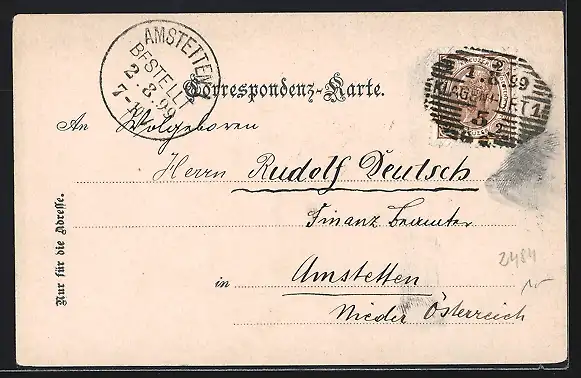 AMSTETTEN
BESTELLT
2.8.99
KLAGENFURT 1
1.8.99
5
Correspondenz-Karte.
An Wolgeboren
Herrn Rudolf Deutsch
Finanz beamter
in Amstetten
Nieder Österreich
Nur für die Adresse.
2484